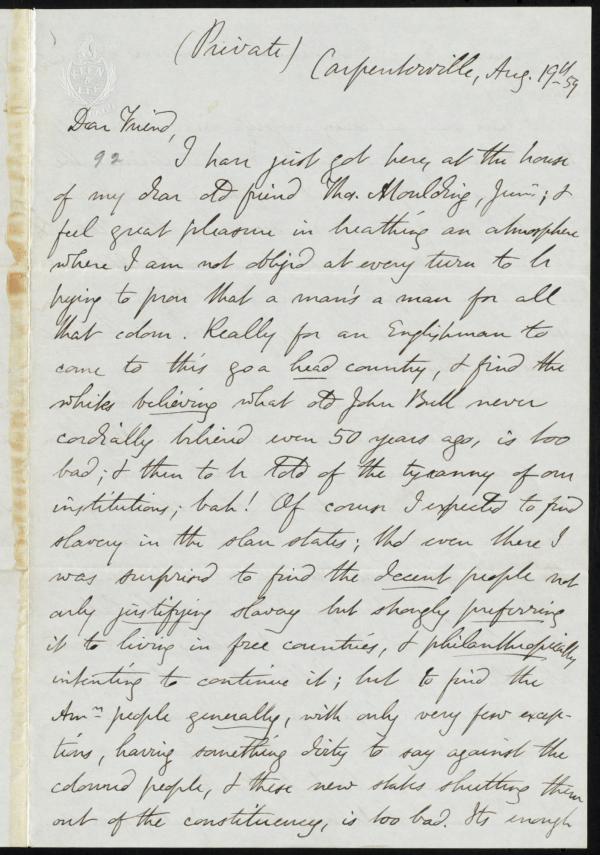 (Private)
Carpentersville, Aug. 19th/59
Dear Friend,
92 I have just got here, at the house
of my dear old friend Thos. Moulding, Junr; &
feel great pleasure in breathing an atmosphere
where I am not oblig'd at every turn to be
trying to prove that a man's a man for all
that colour. Really for an Englishman to
come to this go a head country, & find the
whites believing what old John Bull never
cordially believed even 50 years ago, is too
bad; & then to be told of the tyranny of our
institutions; bah! Of course I expected to find
slavery in the slave states; tho' even there I
was surprised to find the decent people not
only justifying slavery but strongly preferring
it to living in free countries, & philanthropically
intending to continue it; but to find the
Amn people generally, with only very few excep-
tions, having something dirty to say against the
coloured people, & these new states shutting them
out of the constituency, is too bad. Its enough